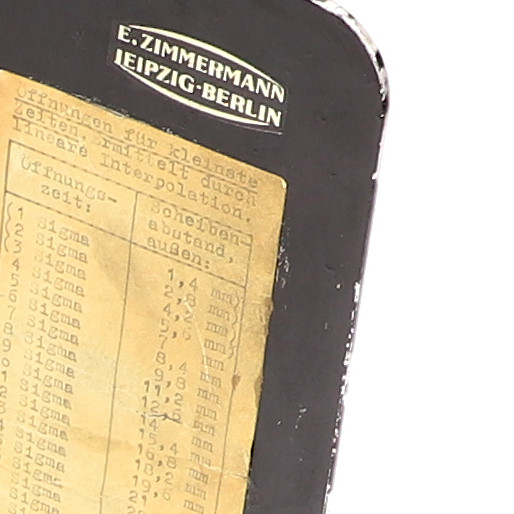 E. ZIMMERMANN
LEIPZIG·BERLIN
Öffnungen für kleinste
Zeiten, ermittelt durch
lineare Interpolation.
Öffnungs-
zeit:
Scheiben-
abstand,
außen:
(1 sigma 1,4 mm)
2 sigma 2,8 mm
(3 sigma 4,2 mm
4 sigma 5,6 mm
5 sigma 7 mm
6 sigma 8,4 mm
7 sigma 9,8 mm
8 sigma 11,2 mm
9 sigma 12,6 mm
0 sigma 14 mm
1 sigma 15,4 mm
2 sigma 16,8 mm
3 sigma 18,2 mm
4 sigma 19,6 mm
sigma 21 mm